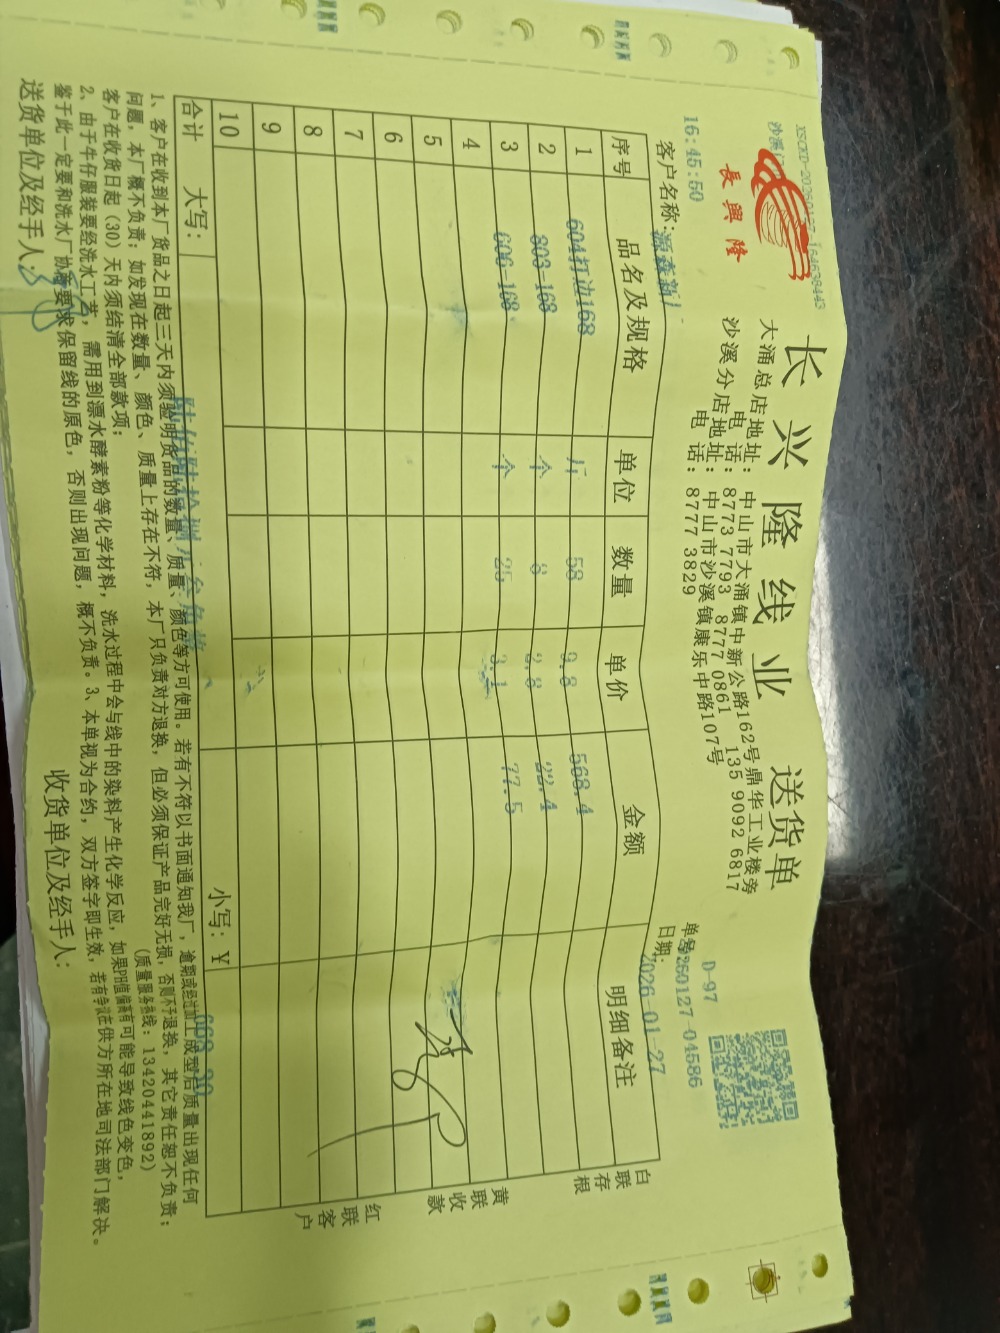 长兴隆线业 送货单
長興隆
大涌总店地址: 中山市大涌镇中新公路162号鼎华工业楼旁
电 话: 8773 7793 8777 0861 135 9092 6817
沙溪分店地址: 中山市沙溪镇康乐中路107号
电 话: 8777 3829
D-97
单号:
260127-04586
16:45:50
客户名称: 源森新
日期: 2026-01-27
序号 品名及规格 单位 数量 单价 金额 明细备注
1 604打边168 斤 58 9.8 568.4
2 803-168 个 8 2.8 22.4
3 606-168 个 25 3.1 77.5
4
5
6
7
8
9
10
合计 大写: 小写: ¥
白联存根
黄联收款
红联客户
1、客户在收到本厂货品之日起三天内须验明货品的数量、质量、颜色等方可使用。若有不符以书面通知我厂,逾期或经过加工成型后质量出现任何
问题,本厂概不负责;如发现在数量、颜色、质量上存在不符,本厂只负责对方退换,但必须保证产品完好无损,否则不予退换,其它责任恕不负责;
客户在收货日起(30)天内须结清全部款项; (质量服务热线:13420441892)
2、由于牛仔服装要经洗水工艺,需用到漂水酵素粉等化学材料,洗水过程中会与线中的染料产生化学反应,如果PH值偏高有可能导致线色变色,
鉴于此一定要和洗水厂协商要求保留线的原色,否则出现问题,概不负责。3、本单视为合约,双方签字即生效,若有争议在供方所在地司法部门解决。
送货单位及经手人: 收货单位及经手人: